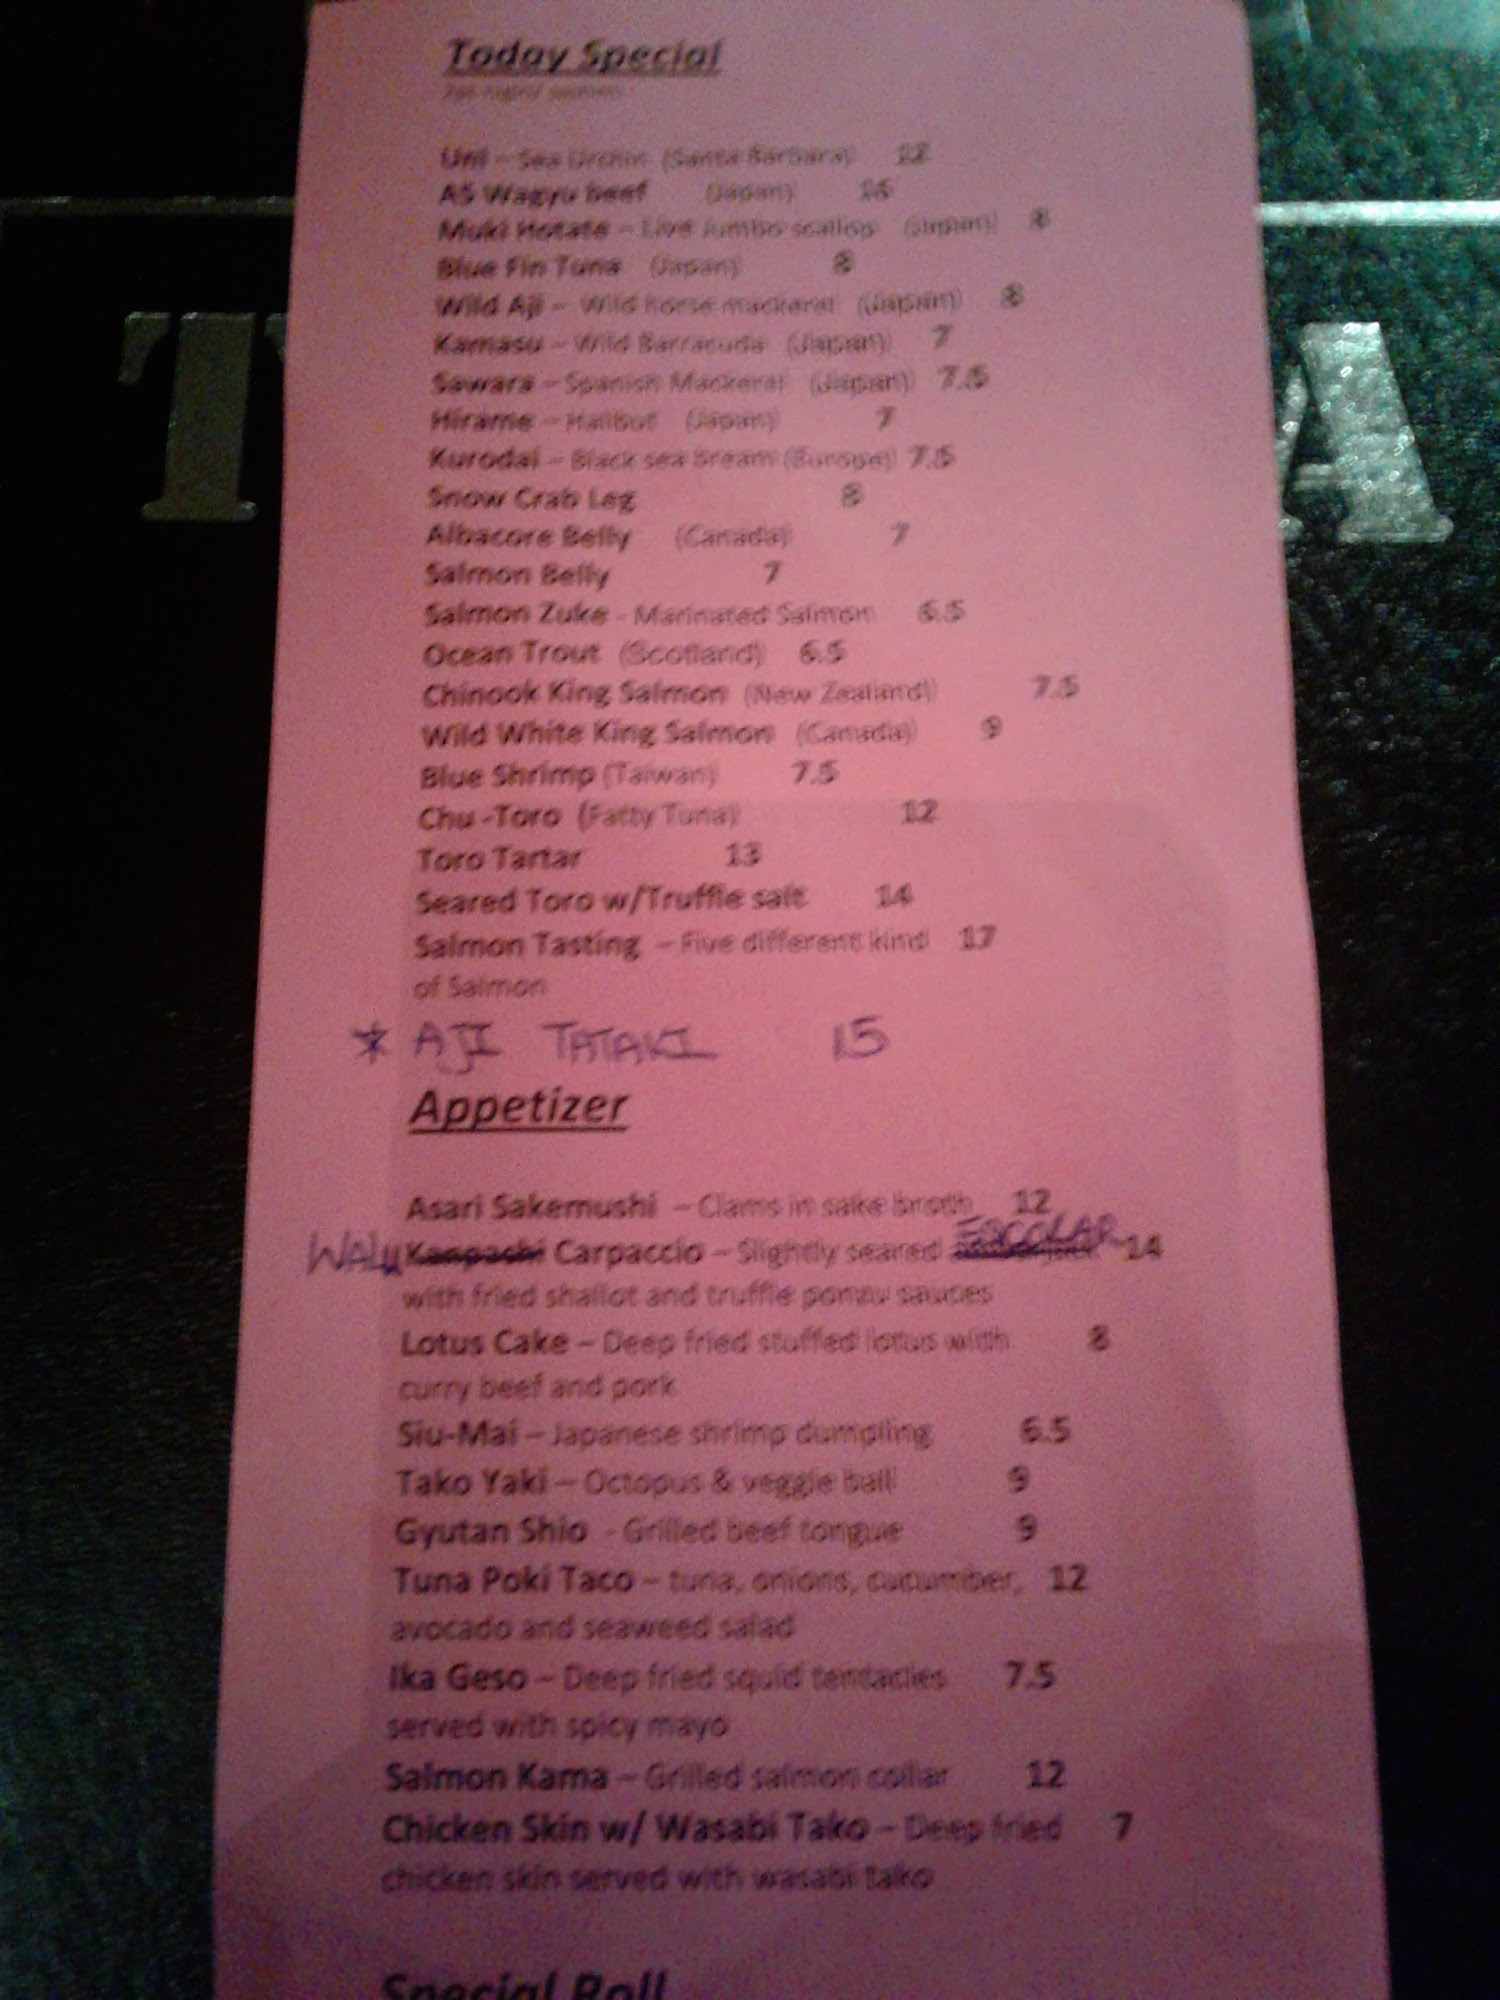 Today Special
Uni – Sea Urchin (Santa Barbara) 12
A5 Wagyu beef (Japan) 16
Muki Hotate – Live Jumbo scallop (Japan) 8
Blue Fin Tuna (Japan) 8
Wild Aji – Wild horse mackeral (Japan) 8
Kamasu – Wild Barracuda (Japan) 7
Sawara – Spanish Mackeral (Japan) 7.5
Hirame – Halibut (Japan) 7
Kurodai – Black sea bream (Europe) 7.5
Snow Crab Leg 8
Albacore Belly (Canada) 7
Salmon Belly 7
Salmon Zuke - Marinated Salmon 6.5
Ocean Trout (Scotland) 6.5
Chinook King Salmon (New Zealand) 7.5
Wild White King Salmon (Canada) 9
Blue Shrimp (Taiwan) 7.5
Chu -Toro (Fatty Tuna) 12
Toro Tartar 13
Seared Toro w/Truffle salt 14
Salmon Tasting – Five different kind 17
of Salmon
* AJI TATAKI 15
Appetizer
Asari Sakemushi – Clams in sake broth 12
WALU Kanpachi Carpaccio – Slightly seared ESCOLAR 14
with fried shallot and truffle ponzu sauces
Lotus Cake – Deep fried stuffed lotus with 8
curry beef and pork
Siu-Mai – Japanese shrimp dumpling 6.5
Tako Yaki – Octopus & veggie ball 9
Gyutan Shio - Grilled beef tongue 9
Tuna Poki Taco – tuna, onions, cucumber, 12
avocado and seaweed salad
Ika Geso – Deep fried squid tentacles 7.5
served with spicy mayo
Salmon Kama – Grilled salmon collar 12
Chicken Skin w/ Wasabi Tako – Deep fried 7
chicken skin served with wasabi tako
Special Roll
T A